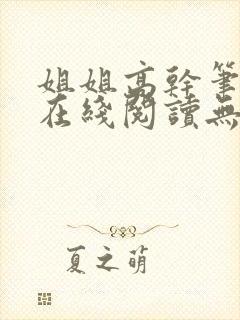 姐姐高幹筆
在綫閱讀無
夏之萌